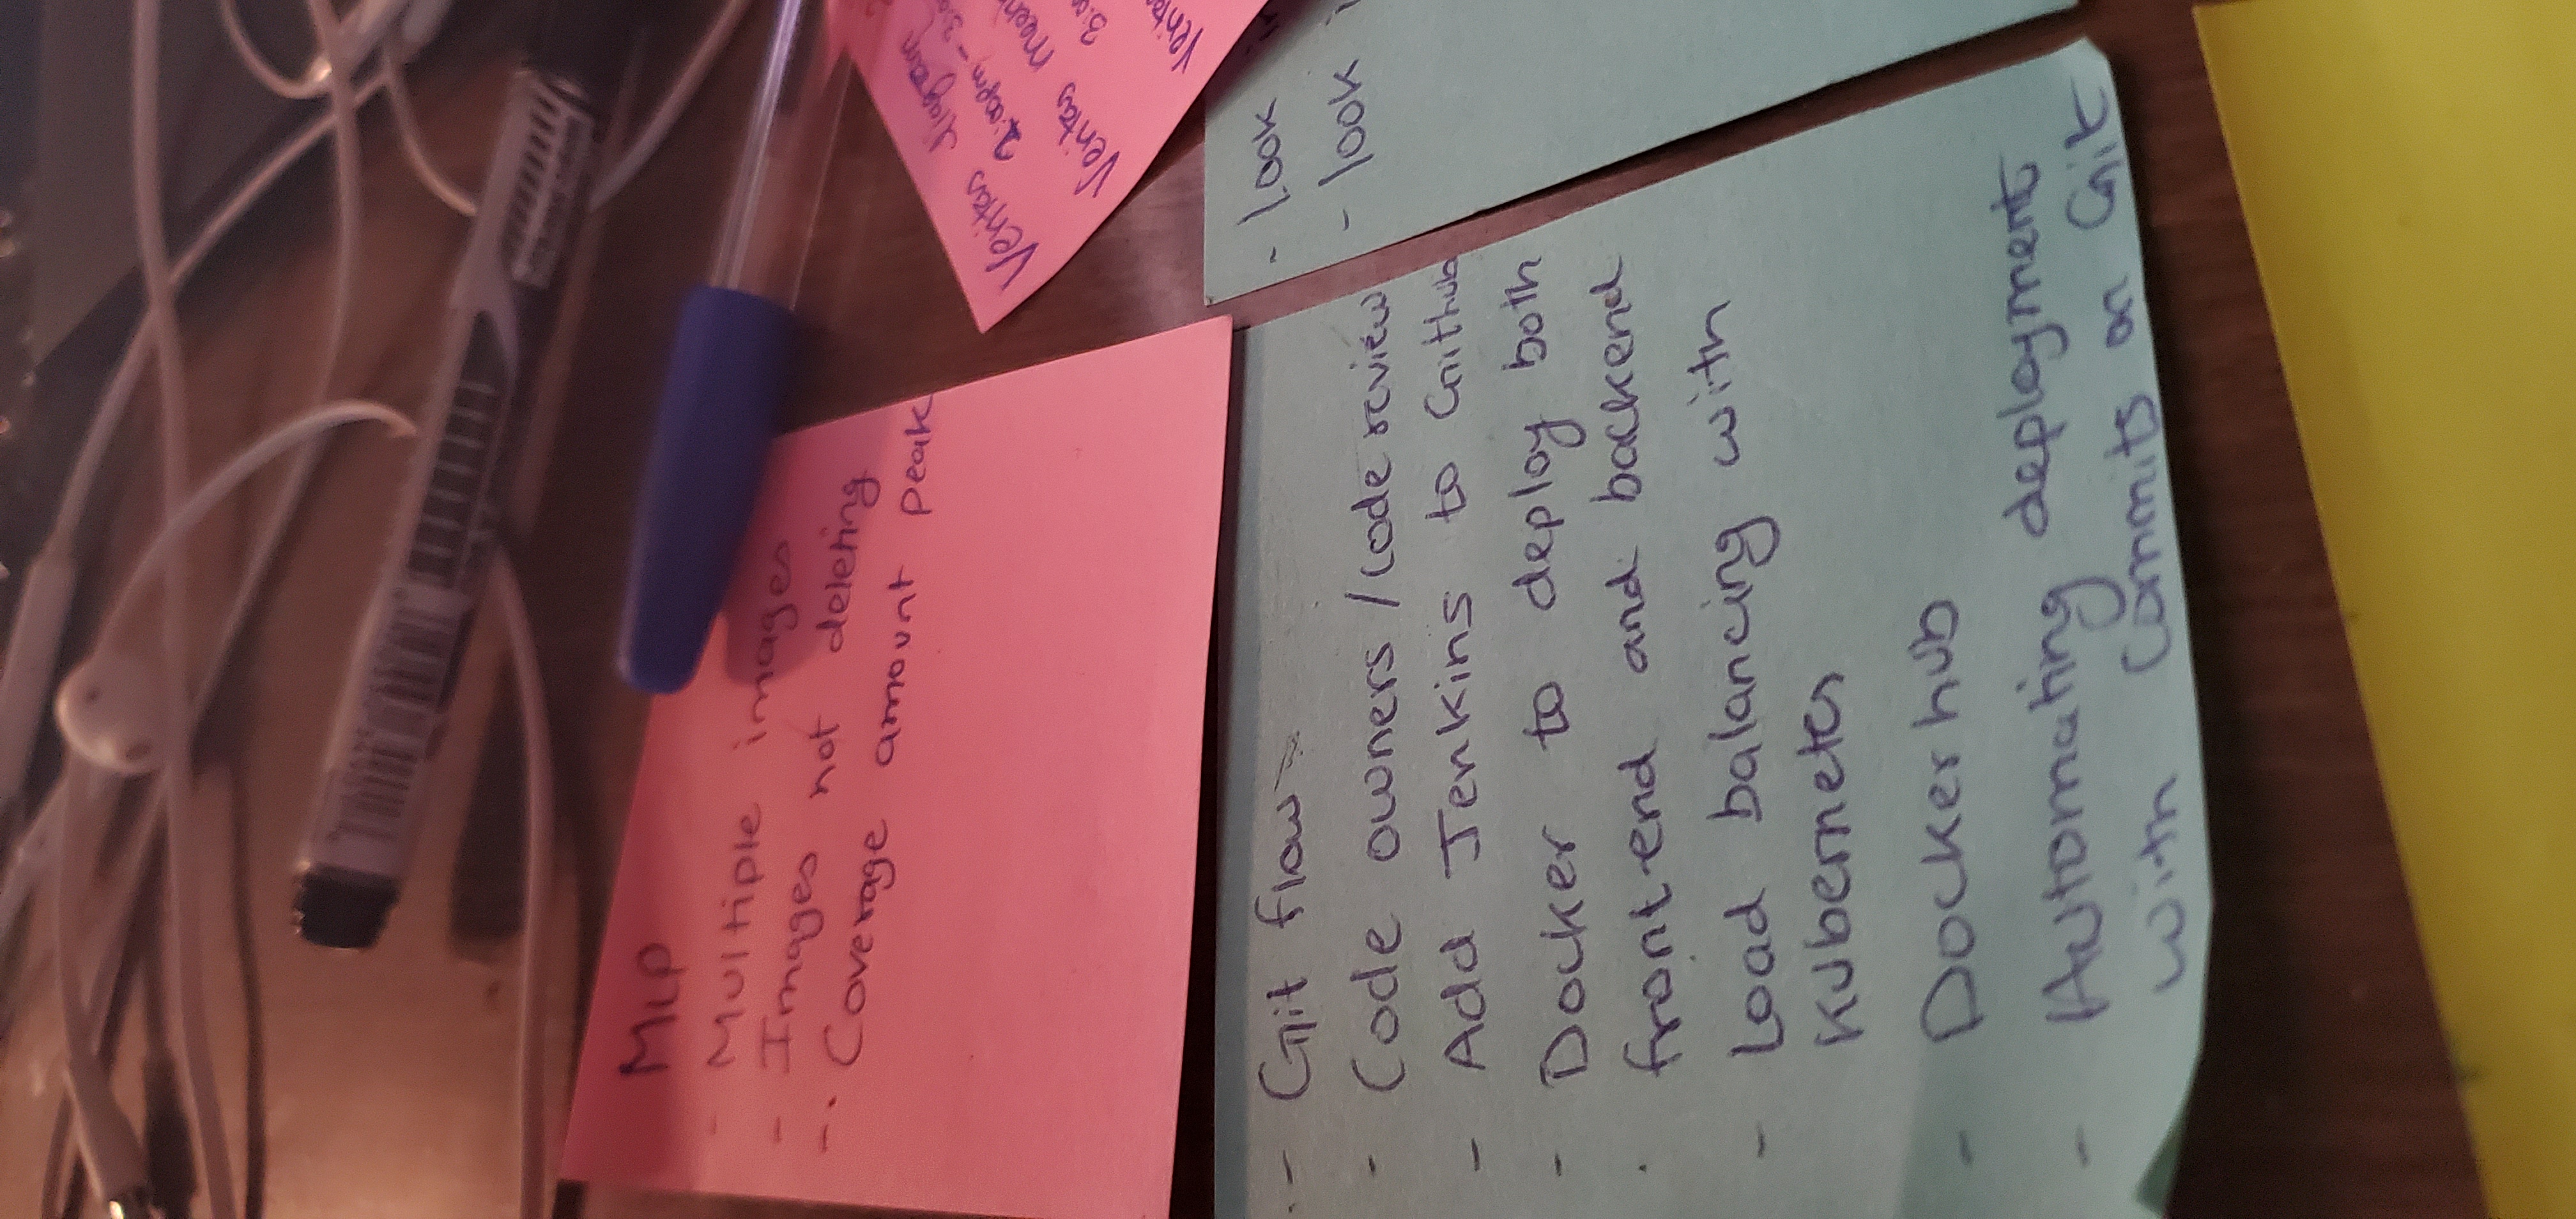 MLP
- Multiple images
- Images not deleting
- Coverage amount peak
Veritas diagram
2:00pm -
Veritas
- Git flow
- Code owners / code review
- Add Jenkins to Github
- Docker to deploy both
front-end and backend
- Load balancing with
Kubernetes
- Docker hub
- Automating deployment
with commits on Git
- look
- look